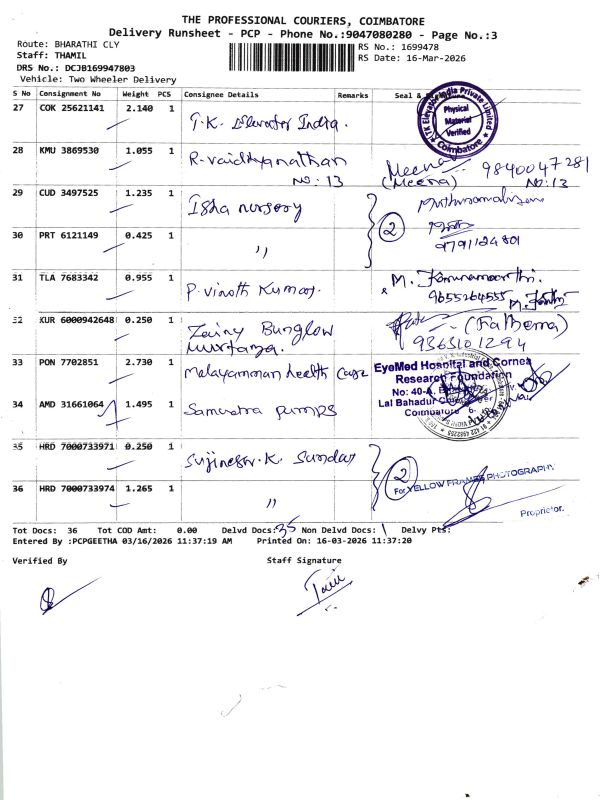 THE PROFESSIONAL COURIERS, COIMBATORE
Delivery Runsheet - PCP - Phone No.:9047080280 - Page No.:3
Route: BHARATHI CLY
RS No.: 1699478
Staff: THAMIL
RS Date: 16-Mar-2026
DRS No.: DCJB169947803
Vehicle: Two Wheeler Delivery
S No Consignment No Weight PCS Consignee Details Remarks Seal &
27 COK 25621141 2.140 1 T.K. Elevator India.
Physical Material Verified
Coimbatore
28 KMU 3869530 1.055 1 R-vaidhyanathan Meena 9840047281
NO: 13 (Meena) NO: 13
29 CUD 3497525 1.235 1 Isha nursery
30 PRT 6121149 0.425 1 ,, 2
9791124801
31 TLA 7683342 0.955 1 P. vinoth Kumar. M.
9655264555
32 KUR 6000942648 0.250 1 Zainy Bunglow (Fathema)
murtaza. 9363101294
33 PON 7702851 2.730 1 Malayamman health Care
EyeMed Hospital and Cornea
Research Foundation
No: 40-A,
Lal Bahadur
Coimbatore 6.
34 AMD 31661064 1.495 1 Samudra pumps
35 HRD 7000733971 0.250 1 Sujinesh. K. Sundar
36 HRD 7000733974 1.265 1 ,, 2
For YELLOW FRAMES PHOTOGRAPHY.
Proprietor.
Tot Docs: 36 Tot COD Amt: 0.00 Delvd Docs: 35 Non Delvd Docs: 1 Delvy Pts:
Entered By :PCPGEETHA 03/16/2026 11:37:19 AM Printed On: 16-03-2026 11:37:20
Verified By Staff Signature